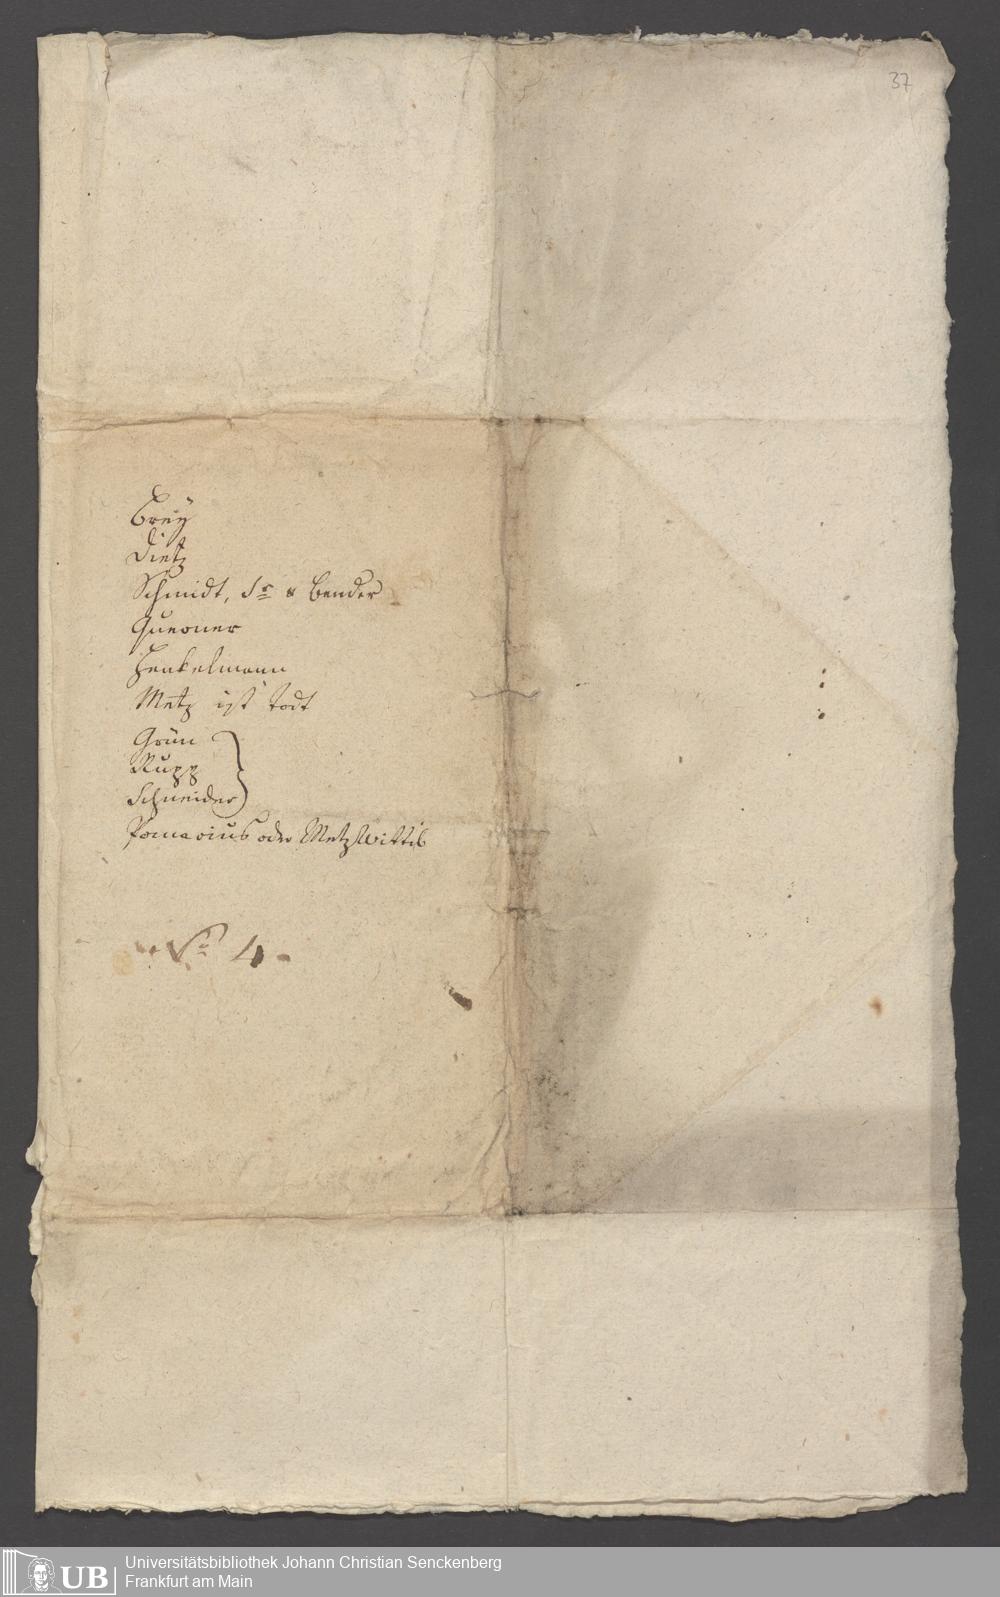 37
Frey
Dietz
Schmidt, Sr & Bender
Querner
Henkelmann
Metz ist todt
Grün
Rupp
Schneider
Pomarius oder Metz Wittib
No 4
UB
Universitätsbibliothek Johann Christian Senckenberg
Frankfurt am Main